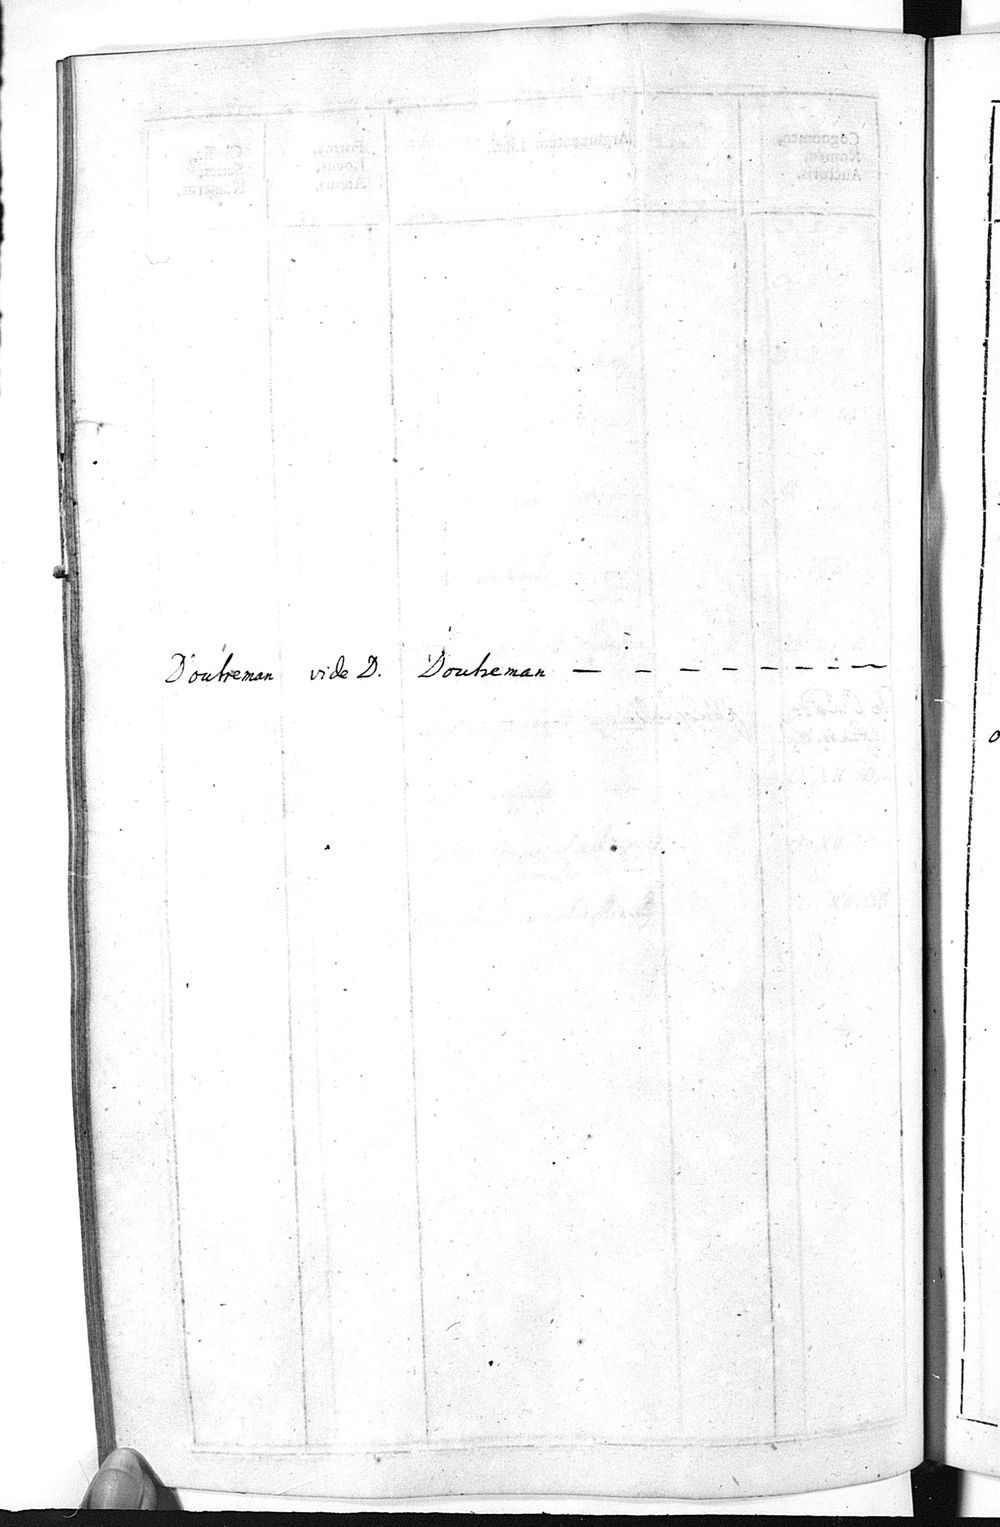 D'outreman vide D. D'outreman — — — — — — — —